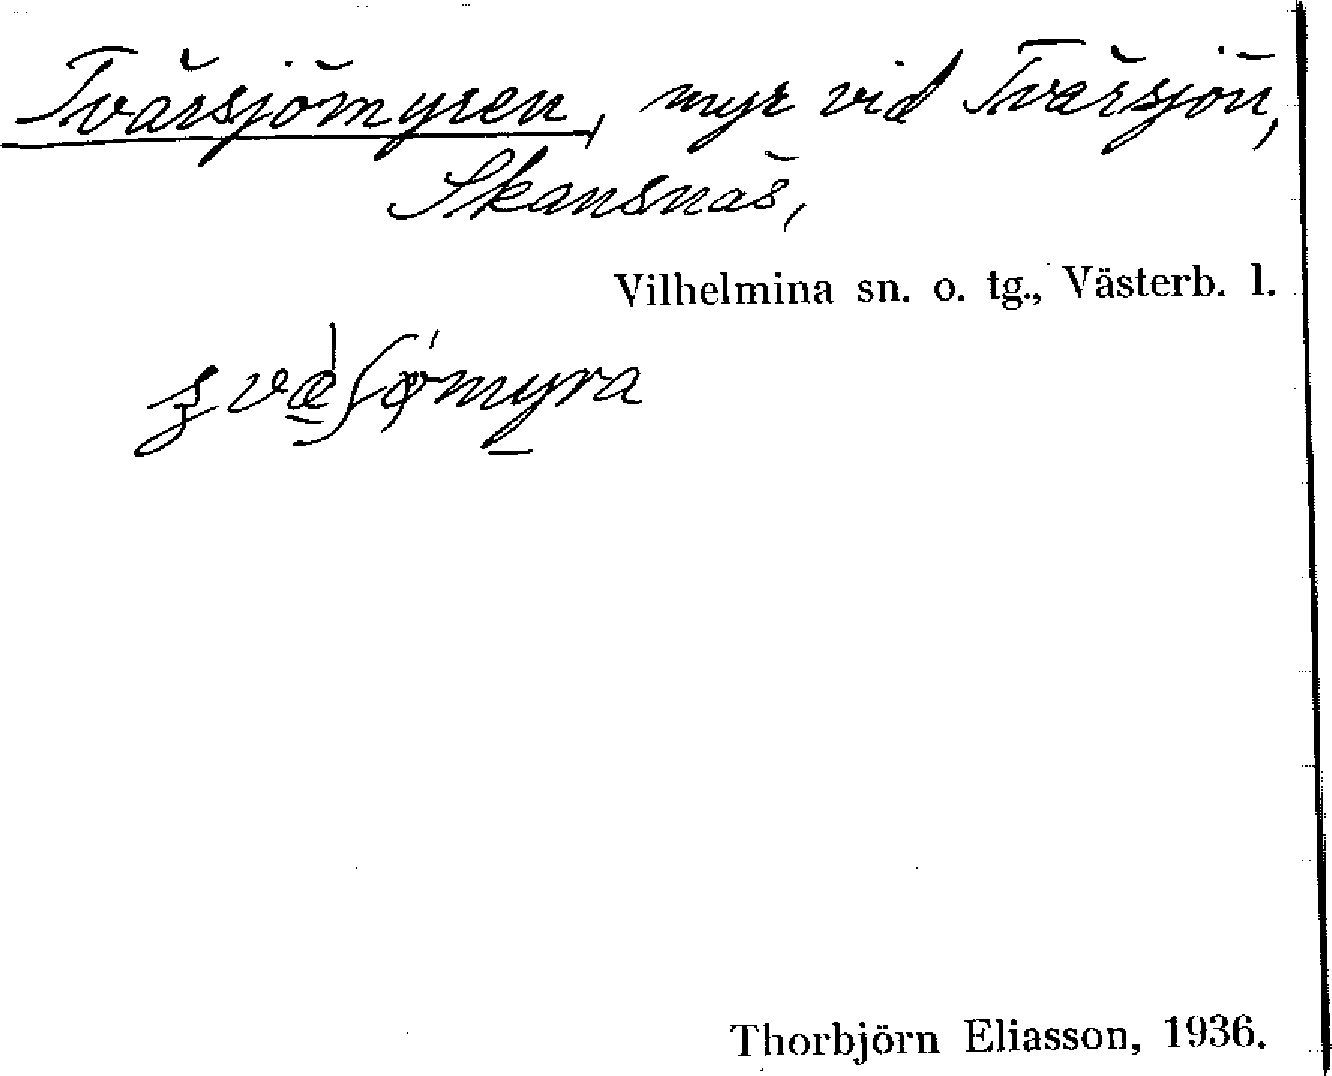 Tvärsjömyren, myr vid Tvärsjön,
Skansnäs,
Vilhelmina sn. o. tg., Västerb. l.
Thorbjörn Eliasson, 1936.